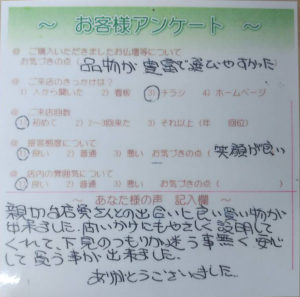 ～ お客様アンケート ～
◎ ご購入いただきましたお仏壇等について
お気づきの点( 品物が豊富で選びやすかった
◎ ご来店のきっかけは?
1) 人から聞いた 2) 看板 3) チラシ 4) ホームページ
◎ ご来店回数
1) 初めて 2) 2～3回来た 3) それ以上( 年 回位)
◎ 接客態度について
1) 良い 2) 普通 3) 悪い お気づきの点( 笑顔が良い
◎ 店内の雰囲気について
1) 良い 2) 普通 3) 悪い お気づきの点( )
～ あなた様の声 記入欄 ～
親切な店員さんとの出会いに良い買い物が
出来ました。問いかけにもやさしく説明して
くれて、下見のつもりが迷う事無く安心
して買う事が出来ました。
ありがとうございました。